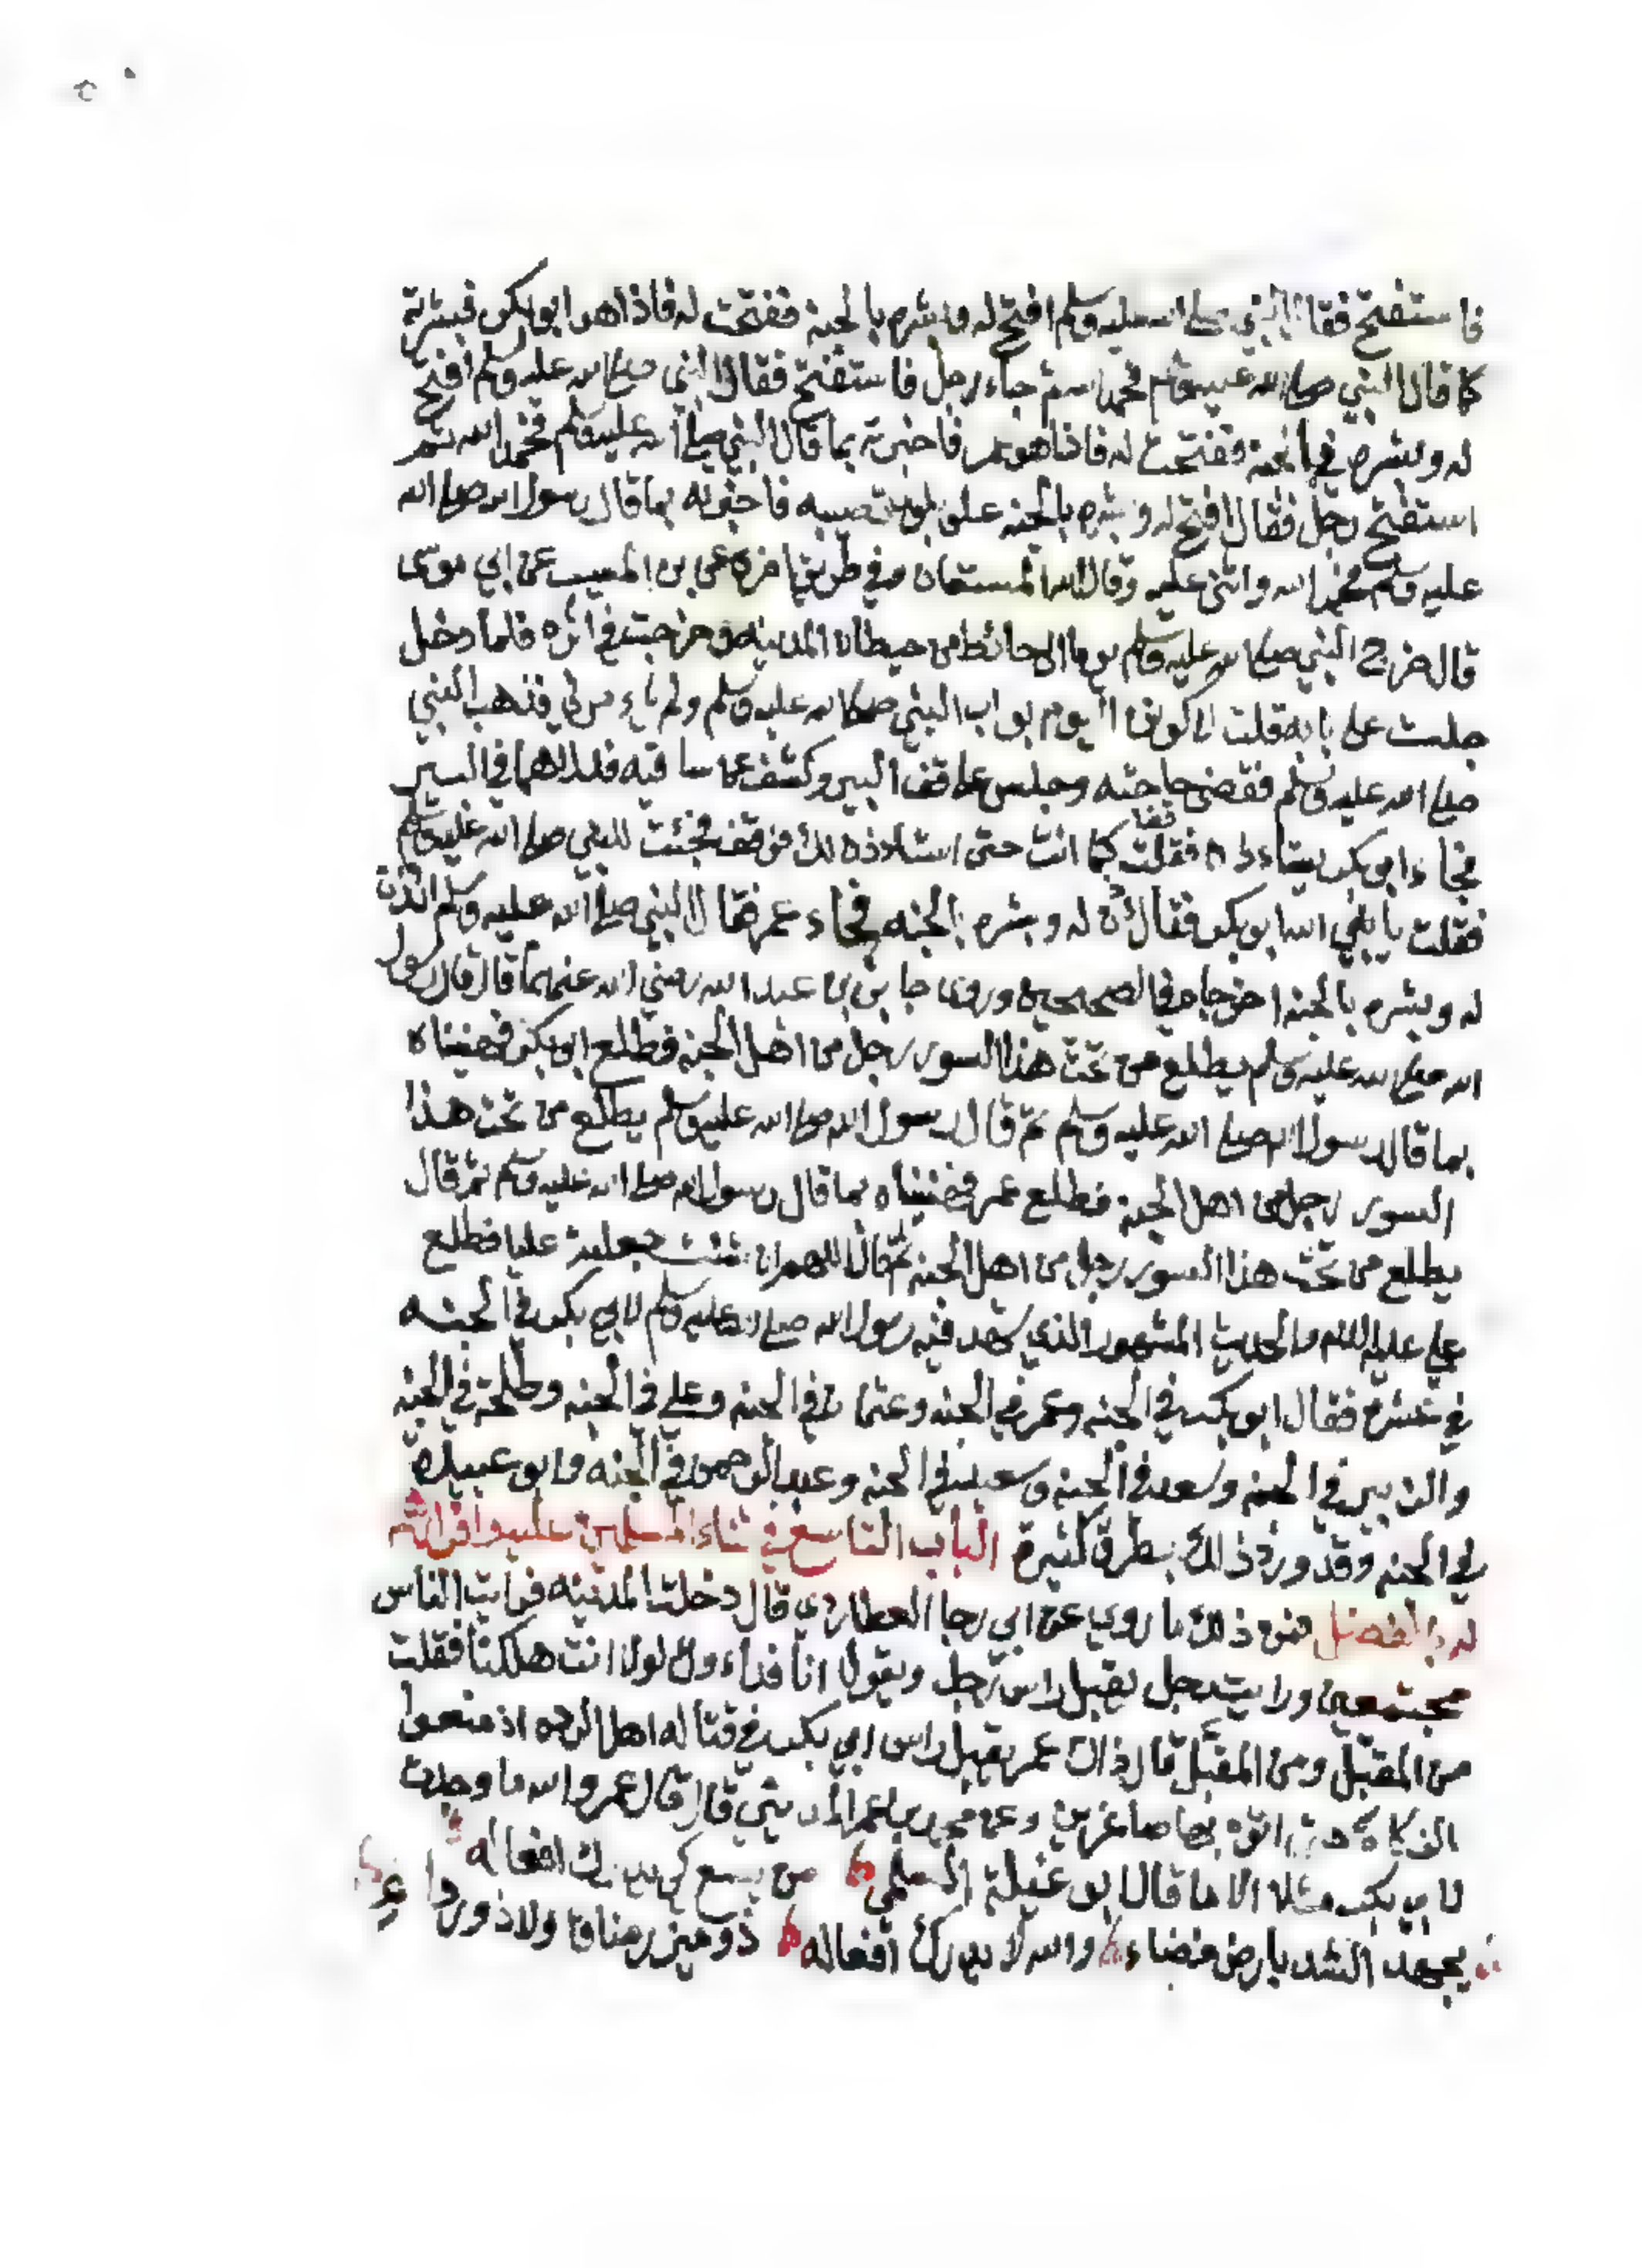 فاستفتح فقال النبي صلى الله عليه وسلم افتح له وبشره بالجنة ففتحت له فاذا هو ابو بكر فبشرته
كما قال النبي صلى الله عليه وسلم فحمد الله ثم جاء رجل فاستفتح فقال النبي صلى الله عليه وسلم افتح
له وبشره بالجنة ففتحت له فاذا هو عمر فاخبرته بما قال النبي صلى الله عليه وسلم فحمد الله ثم
استفتح رجل فقال افتح له وبشره بالجنه على بلوى تصيبه فاخبرته بما قال رسول الله صلى الله
عليه وسلم فحمد الله واثنى عليه وقال الله المستعان وفي طريق اخره عن بن المسيب عن ابي موسى
قال خرج النبي صلى الله عليه وسلم يوما الى حائط من حيطان المدينه وخرجت في اثره فلما دخل
جلست على بابه قلت لاكونن اليوم بواب النبي صلى الله عليه وسلم ولم ياءمرني فذهب النبي
صلى الله عليه وسلم فقضى حاجته وجلس على قف البير وكشف عن ساقيه فدلاهما في البير
فجاء ابو بكر يستاءذن فقلت كما انت حتى استاذن لك فوقف فجئت للنبي صلى الله عليه وسلم
فقلت يا نبي الله ابو بكر فقال ائذن له وبشره بالجنه فجاء عمر فقال النبي صلى الله عليه وسلم ائذن
له وبشره بالجنه اخرجاه في الصحيحين وروى جابر بن عبد الله رضي الله عنهما قال قال رسول
الله صلى الله عليه وسلم يطلع من تحت هذا السور رجل من اهل الجنه فطلع ابو بكر فهنيناه
بما قال رسول الله صلى الله عليه وسلم ثم قال رسول الله صلى الله عليه وسلم يطلع من تحت هذا
السور رجل من اهل الجنه فطلع عمر فهنيناه بما قال رسول الله صلى الله عليه وسلم ثم قال
يطلع من تحت هذا السور رجل من اهل الجنه ثم قال اللهم ان شئت جعلته عليا فطلع
علي عليه السلام والحديث المشهور الذي شهد فيه رسول الله صلى الله عليه وسلم لابي بكر في الجنه
في عشرة فقال ابو بكر في الجنه وعمر في الجنه وعثمان في الجنه وعلي في الجنه وطلحة في الجنه
والزبير في الجنه وسعد في الجنه وسعيد في الجنه وعبد الرحمن في الجنه وابو عبيدة
في الجنه وقد ورد ذلك بطرق كثيرة الباب التاسع في ثناء المسلمين عليه واقرارهم
له بالفضل فمن ذلك ما روي عن ابي رجا العطاردي قال دخلت المدينه فرايت الناس
مجتمعين ورايت رجل يقبل راس رجل ويقول انا فداءك لولا انت هلكنا فقلت
من المقبل ومن المقبل قال ذاك عمر يقبل راس ابي بكر في قتاله اهل الرده اذ منعوا
الزكاه حتى اتوه بها صاغرين وعن محمد قال قال عمر والله ما وجدت
لابي بكر مثلا الا ما قال ابو السلمي من يسع كي يدرك افعاله
يجهد الشد بارض فضاء والله لا يدرك افعاله ذو ميزر ضاف ولا ذو ردا